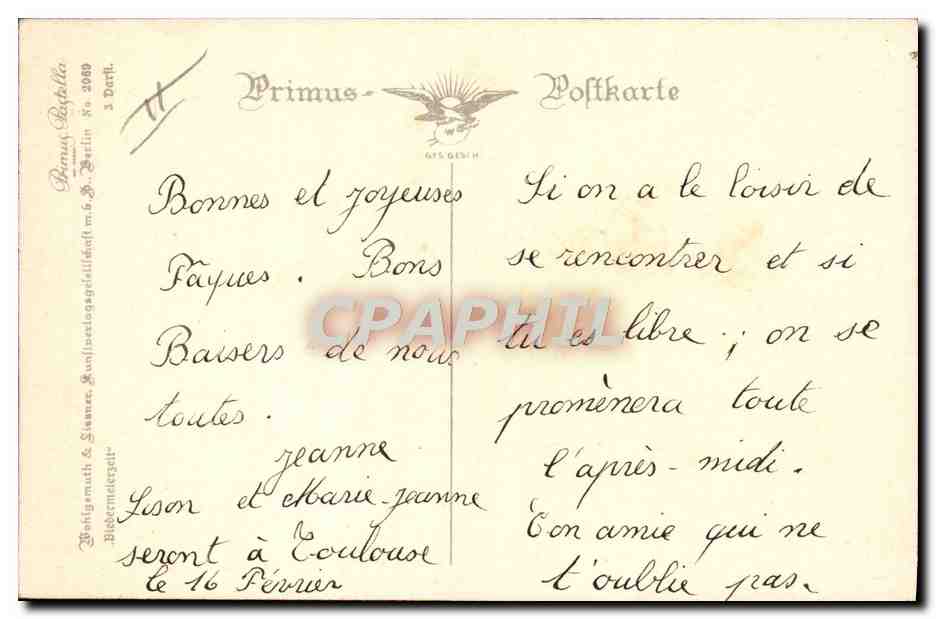 Primus-Postkarte
GES. GESCH.
W S B
Primus Pastella
Wohlgemuth & Lissner, Kunstverlagsgesellschaft m.b.H., Berlin No. 2069
"Biedermeierzeit"
3 Darst.
Bonnes et joyeuses
Pâques. Bons
Baisers de nous
toutes.
Jeanne
Lison et Marie-Jeanne
seront à Toulouse
le 16 Février
Si on a le loisir de
se rencontrer et si
tu es libre ; on se
promènera toute
l'après-midi.
Ton amie qui ne
t'oublie pas.
CPAPHIL